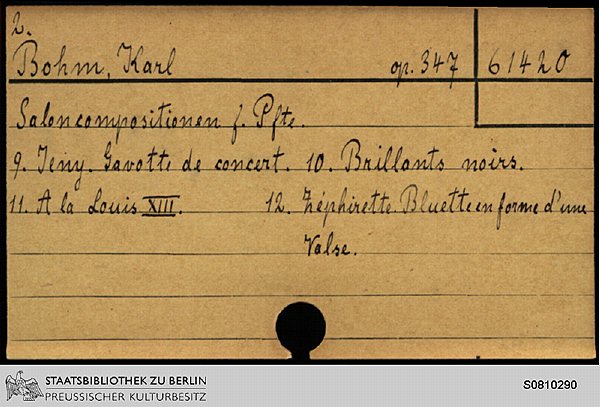 2.
Bohm, Karl op. 347 61420
Saloncompositionen f. Pfte.
9. Jeny. Gavotte de concert. 10. Brillants noirs.
11. A la Louis XIII. 12. Zéphirette. Bluette en forme d'une
Valse.
STAATSBIBLIOTHEK ZU BERLIN
PREUSSISCHER KULTURBESITZ
S0810290